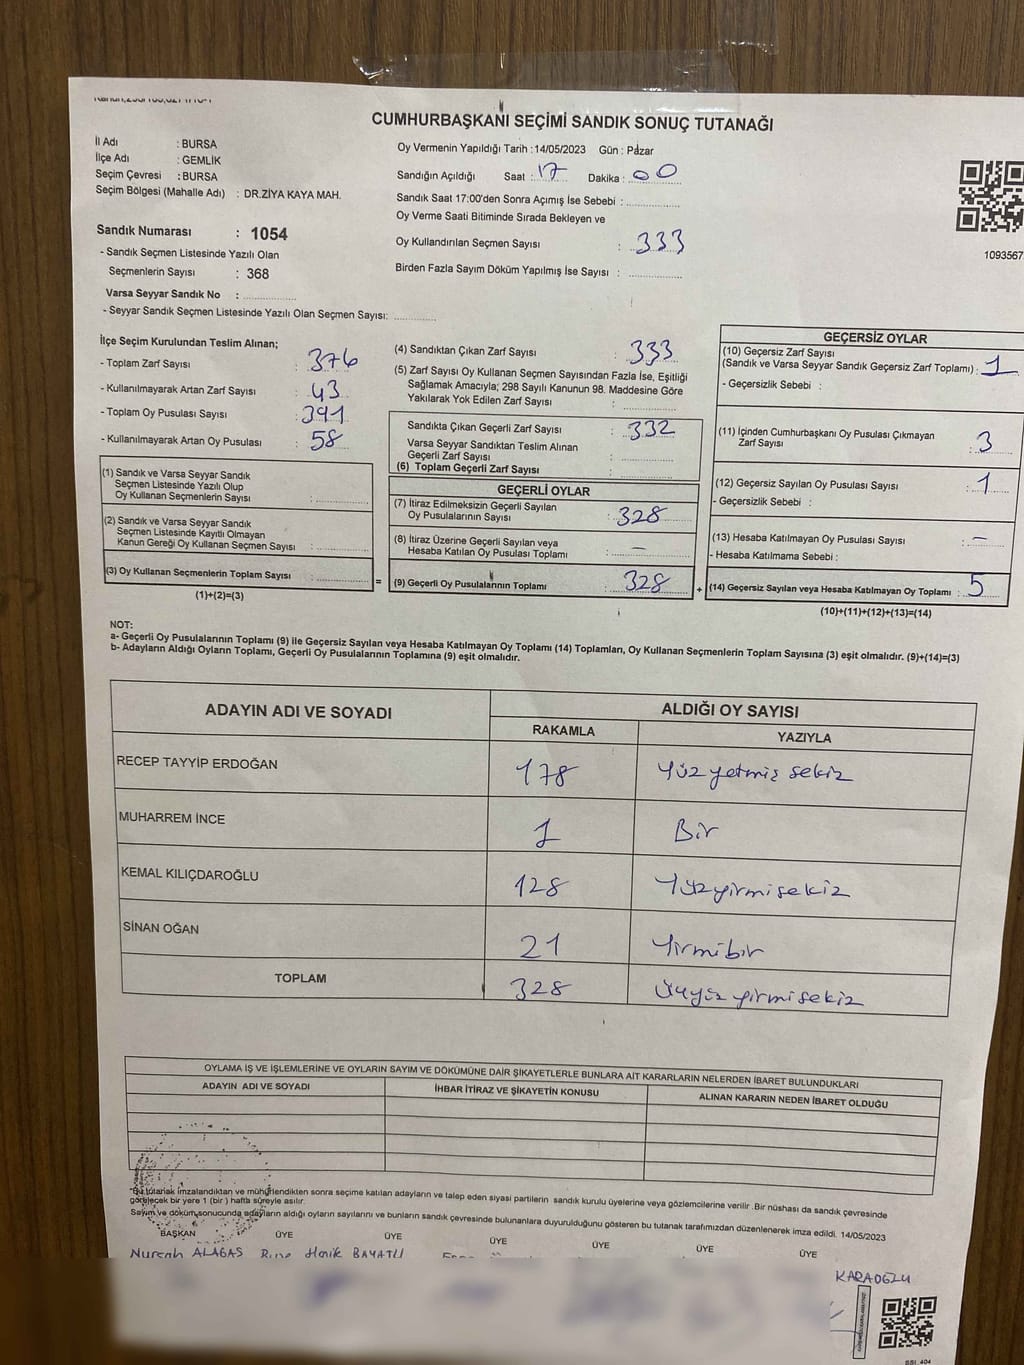 CUMHURBAŞKANI SEÇİMİ SANDIK SONUÇ TUTANAĞI
İl Adı : BURSA
İlçe Adı : GEMLİK
Seçim Çevresi : BURSA
Seçim Bölgesi (Mahalle Adı) : DR.ZİYA KAYA MAH.
Sandık Numarası : 1054
- Sandık Seçmen Listesinde Yazılı Olan
Seçmenlerin Sayısı : 368
Varsa Seyyar Sandık No :
- Seyyar Sandık Seçmen Listesinde Yazılı Olan Seçmen Sayısı:
Oy Vermenin Yapıldığı Tarih :14/05/2023 Gün : Pazar
Sandığın Açıldığı Saat : 17 Dakika : 00
Sandık Saat 17:00'den Sonra Açımış İse Sebebi :
Oy Verme Saati Bitiminde Sırada Bekleyen ve
Oy Kullandırılan Seçmen Sayısı : 333
Birden Fazla Sayım Döküm Yapılmış İse Sayısı :
1093567
İlçe Seçim Kurulundan Teslim Alınan;
- Toplam Zarf Sayısı : 376
- Kullanılmayarak Artan Zarf Sayısı : 43
- Toplam Oy Pusulası Sayısı : 391
- Kullanılmayarak Artan Oy Pusulası : 58
(1) Sandık ve Varsa Seyyar Sandık
Seçmen Listesinde Yazılı Olup
Oy Kullanan Seçmenlerin Sayısı :
(2) Sandık ve Varsa Seyyar Sandık
Seçmen Listesinde Kayıtlı Olmayan
Kanun Gereği Oy Kullanan Seçmen Sayısı :
(3) Oy Kullanan Seçmenlerin Toplam Sayısı :
(1)+(2)=(3)
(4) Sandıktan Çıkan Zarf Sayısı : 333
(5) Zarf Sayısı Oy Kullanan Seçmen Sayısından Fazla İse, Eşitliği
Sağlamak Amacıyla; 298 Sayılı Kanunun 98. Maddesine Göre
Yakılarak Yok Edilen Zarf Sayısı :
Sandıkta Çıkan Geçerli Zarf Sayısı : 332
Varsa Seyyar Sandıktan Teslim Alınan
Geçerli Zarf Sayısı :
(6) Toplam Geçerli Zarf Sayısı :
GEÇERLİ OYLAR
(7) İtiraz Edilmeksizin Geçerli Sayılan
Oy Pusulalarının Sayısı : 328
(8) İtiraz Üzerine Geçerli Sayılan veya
Hesaba Katılan Oy Pusulası Toplamı : -
= (9) Geçerli Oy Pusulalarının Toplamı 328
GEÇERSİZ OYLAR
(10) Geçersiz Zarf Sayısı
(Sandık ve Varsa Seyyar Sandık Geçersiz Zarf Toplamı) : 1
- Geçersizlik Sebebi :
(11) İçinden Cumhurbaşkanı Oy Pusulası Çıkmayan
Zarf Sayısı : 3
(12) Geçersiz Sayılan Oy Pusulası Sayısı : 1
- Geçersizlik Sebebi :
(13) Hesaba Katılmayan Oy Pusulası Sayısı : -
- Hesaba Katılmama Sebebi :
+ (14) Geçersiz Sayılan veya Hesaba Katılmayan Oy Toplamı : 5
(10)+(11)+(12)+(13)=(14)
NOT:
a- Geçerli Oy Pusulalarının Toplamı (9) ile Geçersiz Sayılan veya Hesaba Katılmayan Oy Toplamı (14) Toplamları, Oy Kullanan Seçmenlerin Toplam Sayısına (3) eşit olmalıdır. (9)+(14)=(3)
b- Adayların Aldığı Oyların Toplamı, Geçerli Oy Pusulalarının Toplamına (9) eşit olmalıdır.
ADAYIN ADI VE SOYADI ALDIĞI OY SAYISI
RAKAMLA YAZIYLA
RECEP TAYYİP ERDOĞAN 178 Yüz yetmiş sekiz
MUHARREM İNCE 1 Bir
KEMAL KILIÇDAROĞLU 128 Yüzyirmisekiz
SİNAN OĞAN 21 Yirmibir
TOPLAM 328 Üçyüz yirmisekiz
OYLAMA İŞ VE İŞLEMLERİNE VE OYLARIN SAYIM VE DÖKÜMÜNE DAİR ŞİKAYETLERLE BUNLARA AİT KARARLARIN NELERDEN İBARET BULUNDUKLARI
ADAYIN ADI VE SOYADI İHBAR İTİRAZ VE ŞİKAYETİN KONUSU ALINAN KARARIN NEDEN İBARET OLDUĞU
*Bu tutanak imzalandıktan ve mühürlendikten sonra seçime katılan adayların ve talep eden siyasi partilerin sandık kurulu üyelerine veya gözlemcilerine verilir .Bir nüshası da sandık çevresinde
görülecek bir yere 1 (bir ) hafta süreyle asılır.
Sayım ve döküm sonucunda adayların aldığı oyların sayılarını ve bunların sandık çevresinde bulunanlara duyurulduğunu gösteren bu tutanak tarafımızdan düzenlenerek imza edildi. 14/05/2023
BAŞKAN ÜYE ÜYE ÜYE ÜYE ÜYE ÜYE
Nursah ALAGAS BAYATLI
KARAOGLU